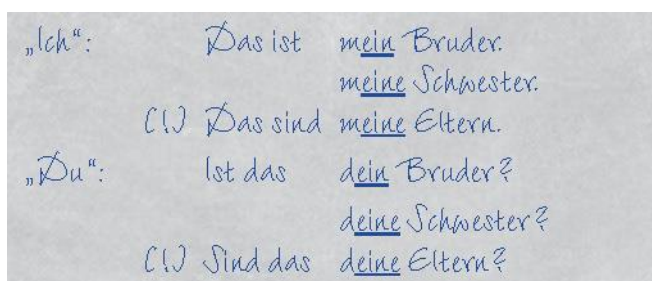 „Ich“: Das ist mein Bruder.
meine Schwester.
(!) Das sind meine Eltern.
„Du“: Ist das dein Bruder?
deine Schwester?
(!) Sind das deine Eltern?